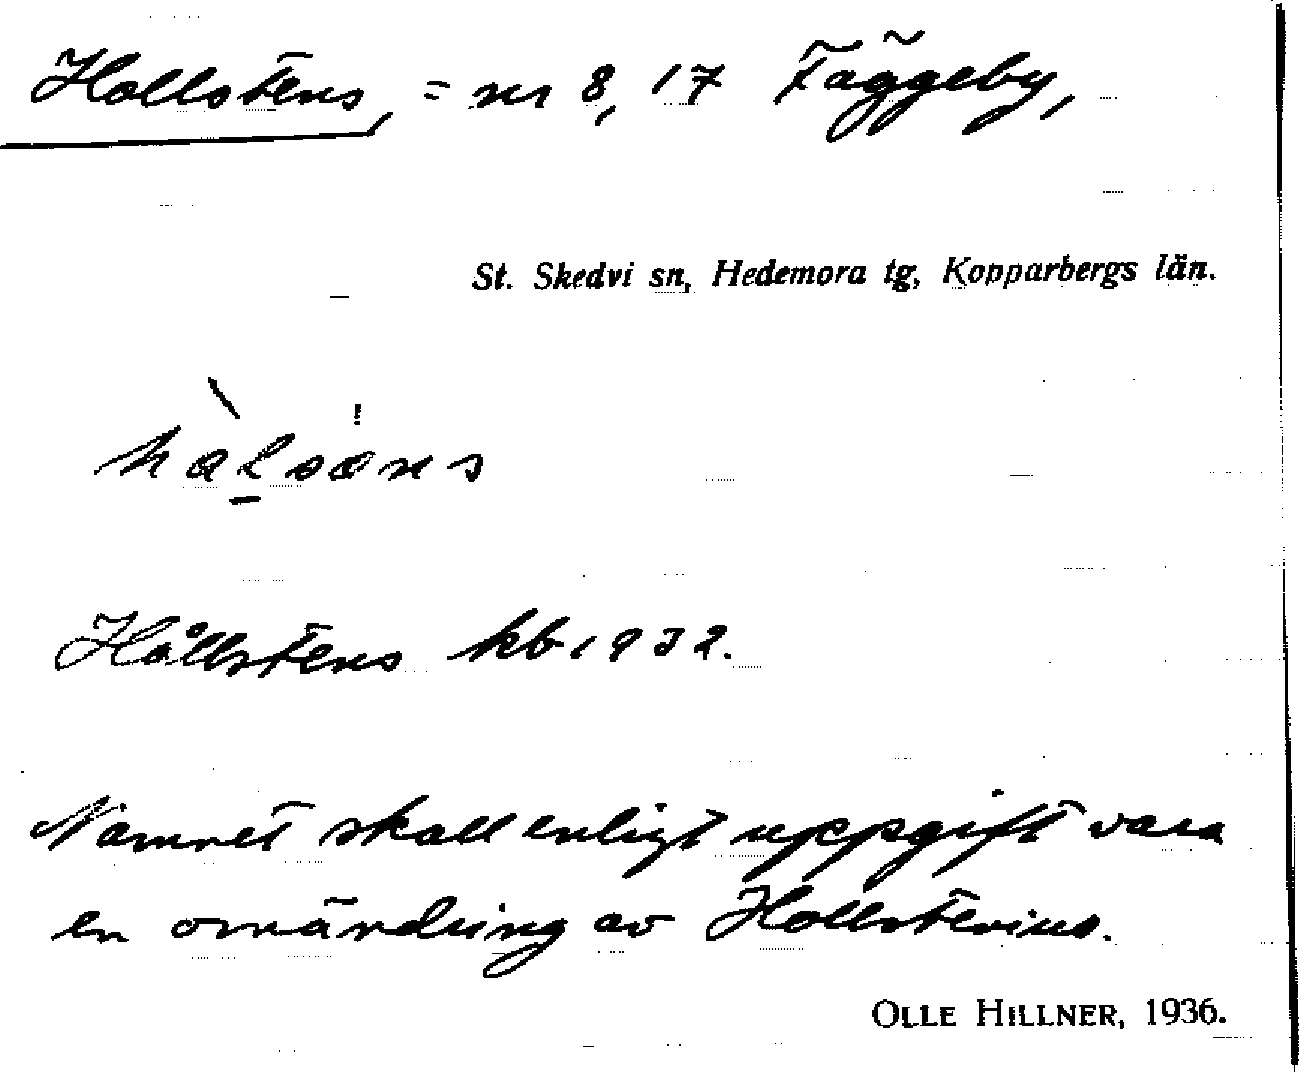 Hollstens, = nr 8, 17 Fäggeby,
St. Skedvi sn, Hedemora tg, Kopparbergs län.
Hållstens kb 1932.
Namnet skall enligt uppgift vara
en omändring av Hollstenius.
OLLE HILLNER, 1936.